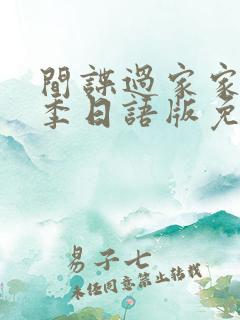 間諜過家家
季日語版免
易子七
未經同意禁止轉載